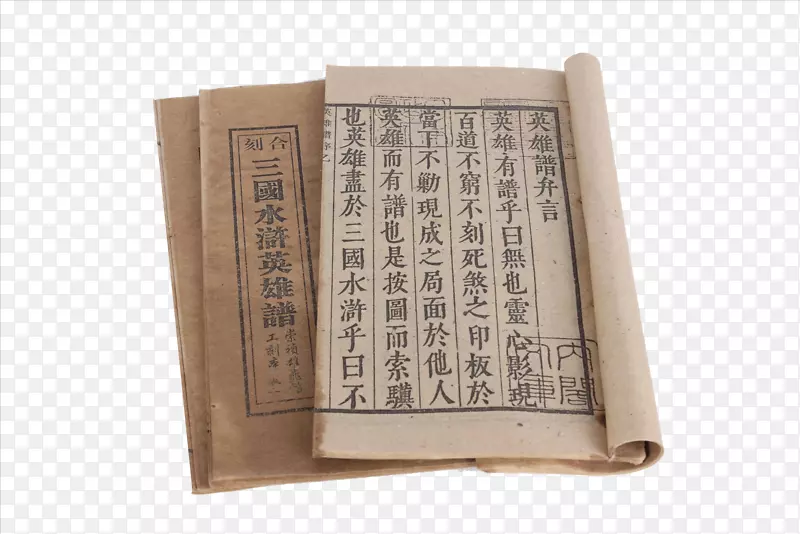 英雄譜弁言
英雄有譜乎曰無也靈心影現
百道不窮不刻死煞之印板於
當下不勦現成之局面於他人
英雄而有譜也是按圖而索驥
也英雄盡於三國水滸乎曰不
內閣
合刻
三國水滸英雄譜